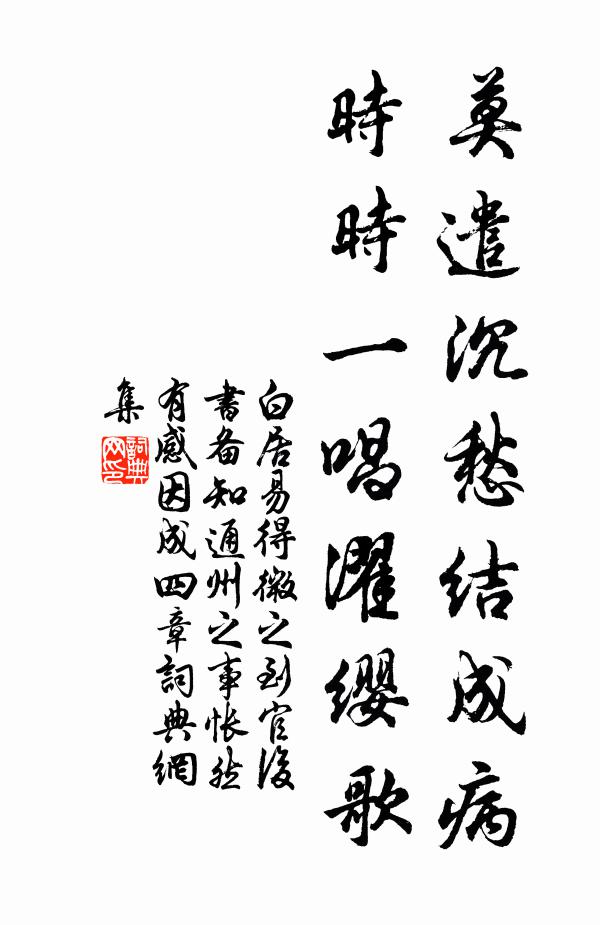 莫遣沉愁結成病
時時一唱濯纓歌
白居易得微之到官後
書备知通州之事悵然
有感因成四章詞典網
集
詞典网印